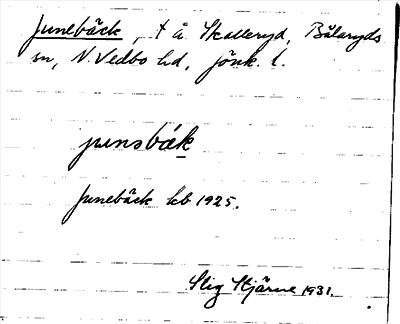 Junebäck, t å Skalleryd, Bälaryds
sn, N. Vedbo hd, Jönk. l.
junsbäk
Junebäck kb 1925.
Stig Stjärne 1931.